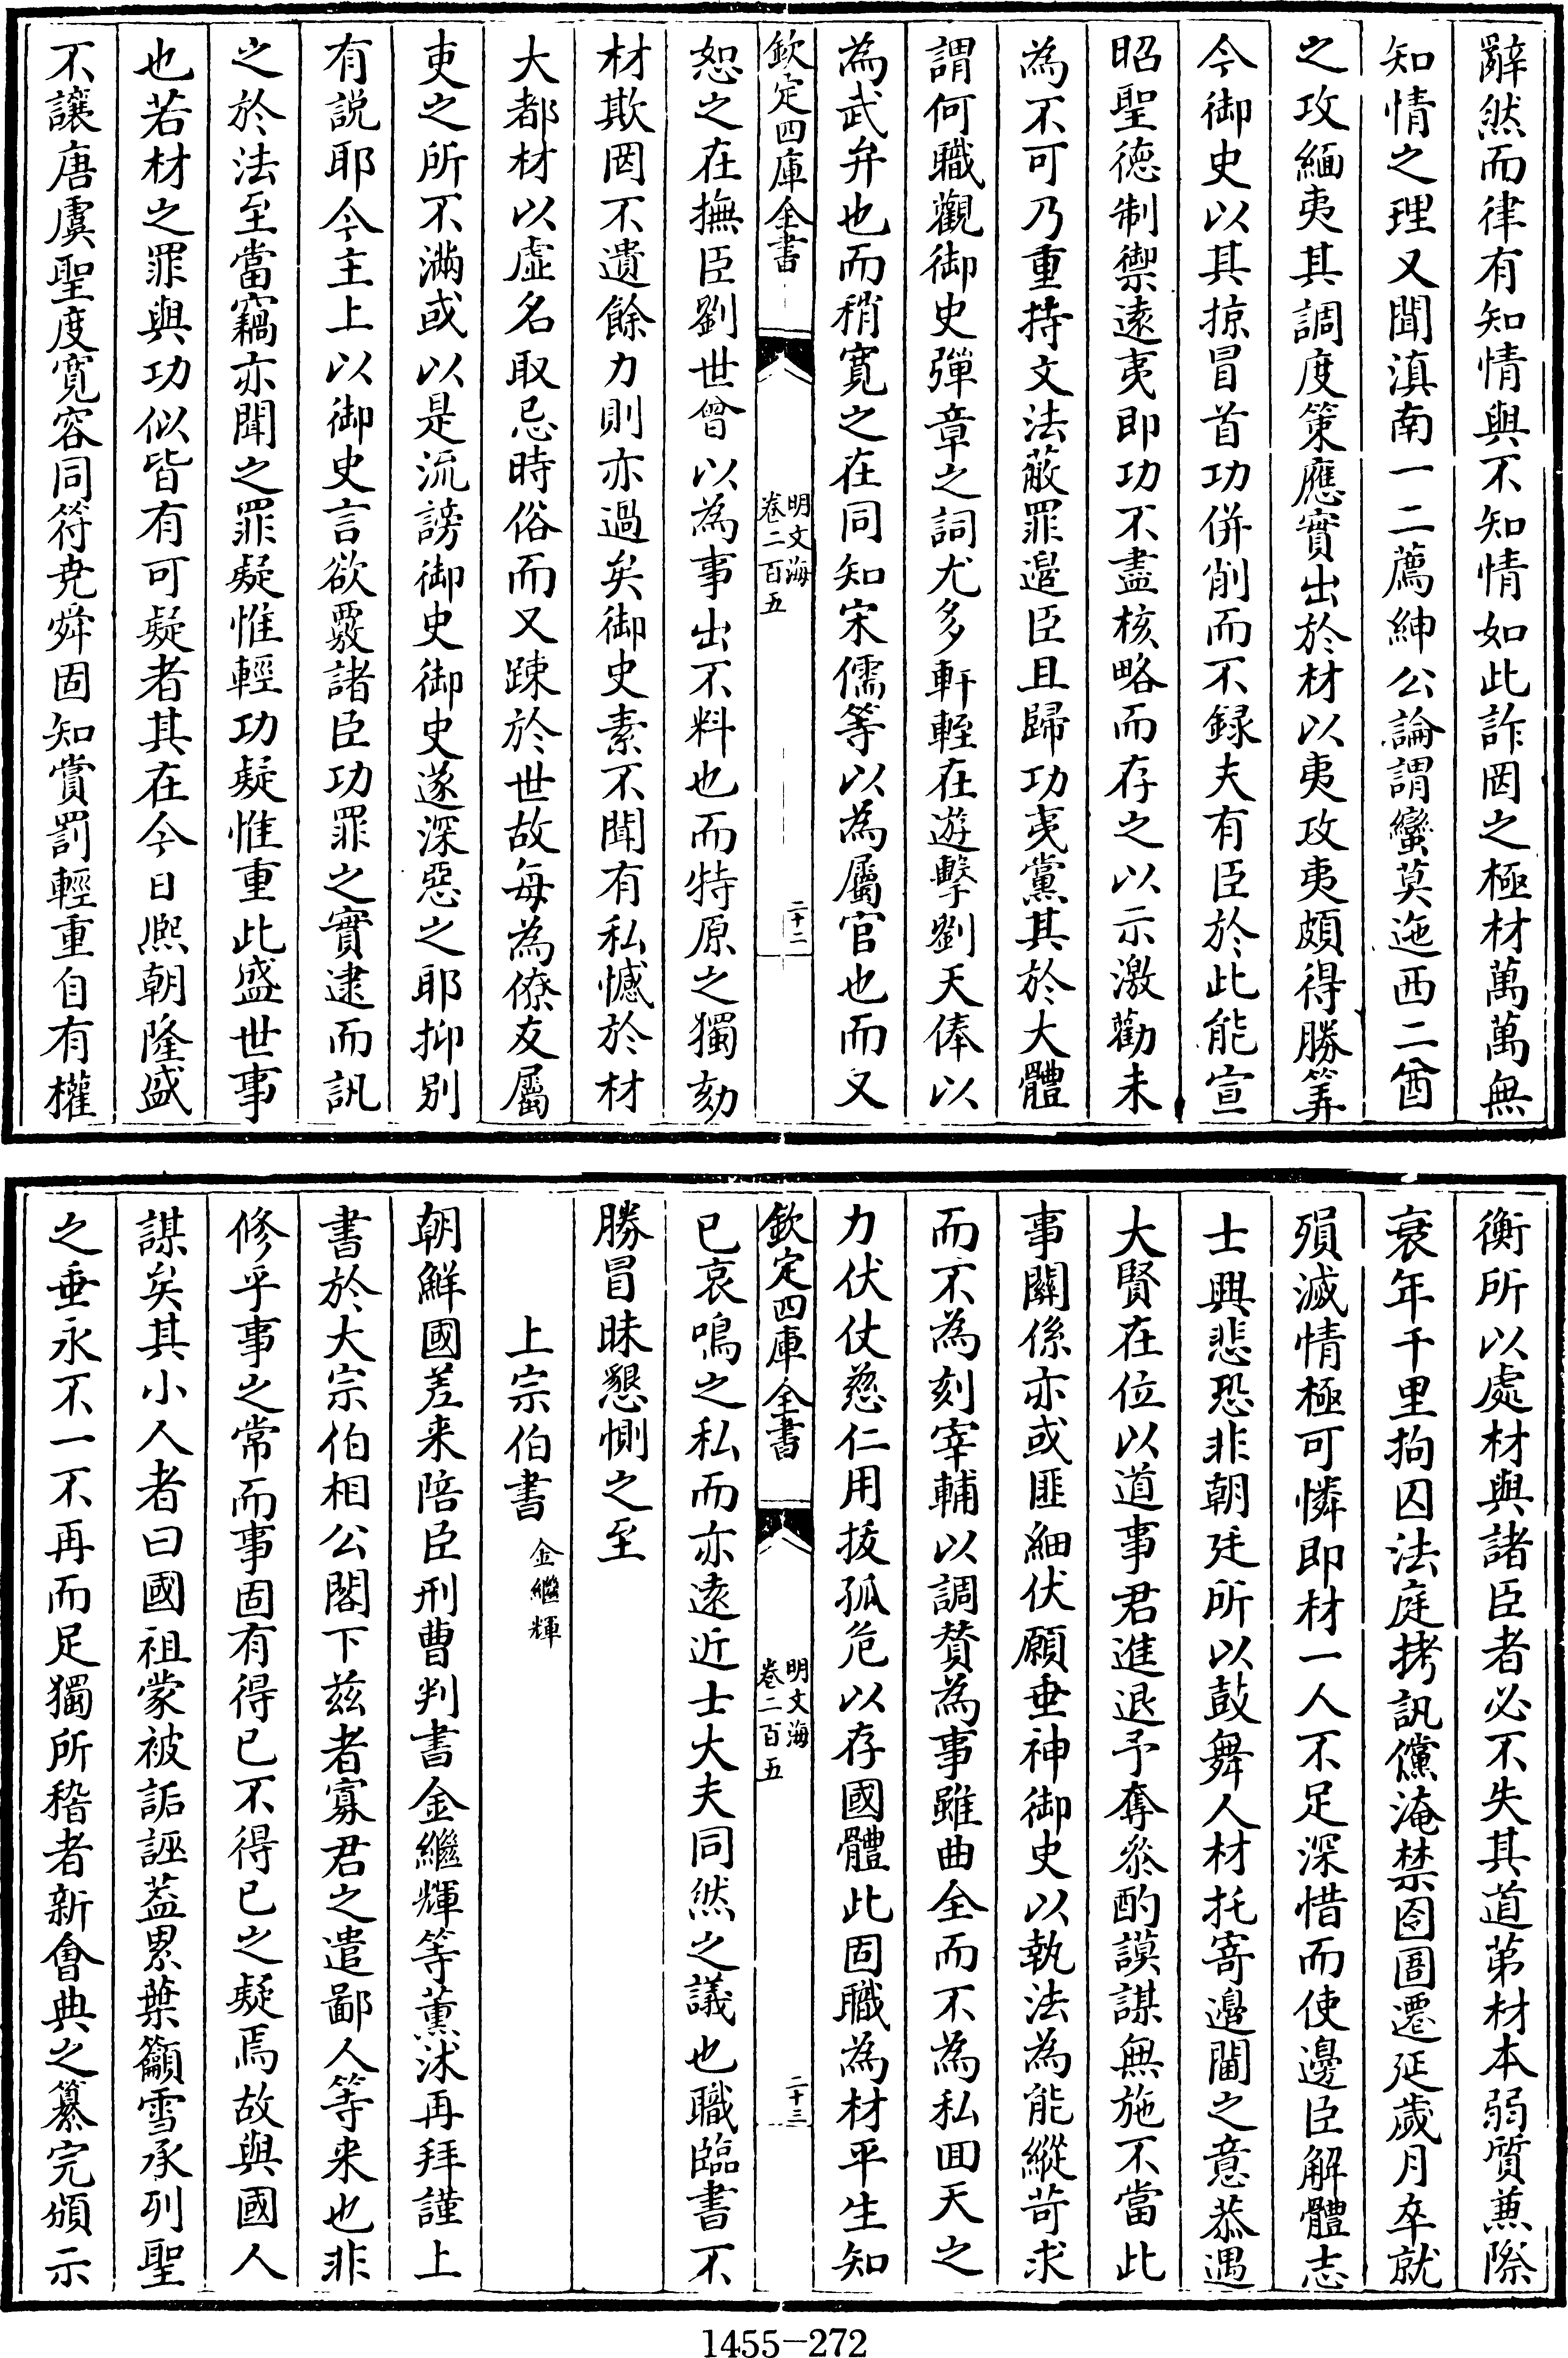 辭然而律有知情與不知情如此詐罔之極材萬萬無
知情之理又聞滇南一二薦紳公論謂蠻莫迤西二酋
之攻緬夷其調度策應實出於材以夷攻夷頗得勝筭
今御史以其掠冒首功併削而不録夫有臣於此能宣
昭聖德制禦遠夷即功不盡核略而存之以示激勸未
為不可乃重持文法蔽罪邉臣且歸功夷黨其於大體
謂何職觀御史彈章之詞尤多軒輊在遊擊劉天俸以
為武弁也而稍寛之在同知宋儒等以為屬官也而又
欽定四庫全書
明文海
卷二百五
二十二
恕之在撫臣劉世曾以為事出不料也而特原之獨劾
材欺罔不遺餘力則亦過矣御史素不聞有私憾於材
大都材以虛名取忌時俗而又踈於世故每為僚友屬
吏之所不滿或以是流謗御史御史遂深惡之耶抑别
有説耶今主上以御史言欲覈諸臣功罪之實逮而訊
之於法至當竊亦聞之罪疑惟輕功疑惟重此盛世事
也若材之罪與功似皆有可疑者其在今日熈朝隆盛
不讓唐虞聖度寛容同符堯舜固知賞罰輕重自有權
衡所以處材與諸臣者必不失其道第材本弱質兼際
衰年千里拘囚法庭拷訊儻淹禁囹圄遷延歲月卒就
殞滅情極可憐即材一人不足深惜而使邊臣解體志
士興悲恐非朝廷所以鼓舞人材托寄邊閫之意恭遇
大賢在位以道事君進退予奪叅酌謨謀無施不當此
事關係亦或匪細伏願垂神御史以執法為能縱苛求
而不為刻宰輔以調賛為事雖曲全而不為私囬天之
力伏仗慈仁用拔孤危以存國體此固職為材平生知
欽定四庫全書
明文海
卷二百五
二十三
已哀鳴之私而亦遠近士大夫同然之議也職臨書不
勝冒昧懇惻之至
上宗伯書 金繼輝
朝鮮國差来陪臣刑曹判書金繼輝等薰沐再拜謹上
書於大宗伯相公閤下兹者寡君之遣鄙人等来也非
修乎事之常而事固有得已不得已之疑焉故與國人
謀矣其小人者曰國祖蒙被詬誣葢累葉籲雪承列聖
之垂永不一不再而足獨所稽者新會典之纂完頒示
1455-272